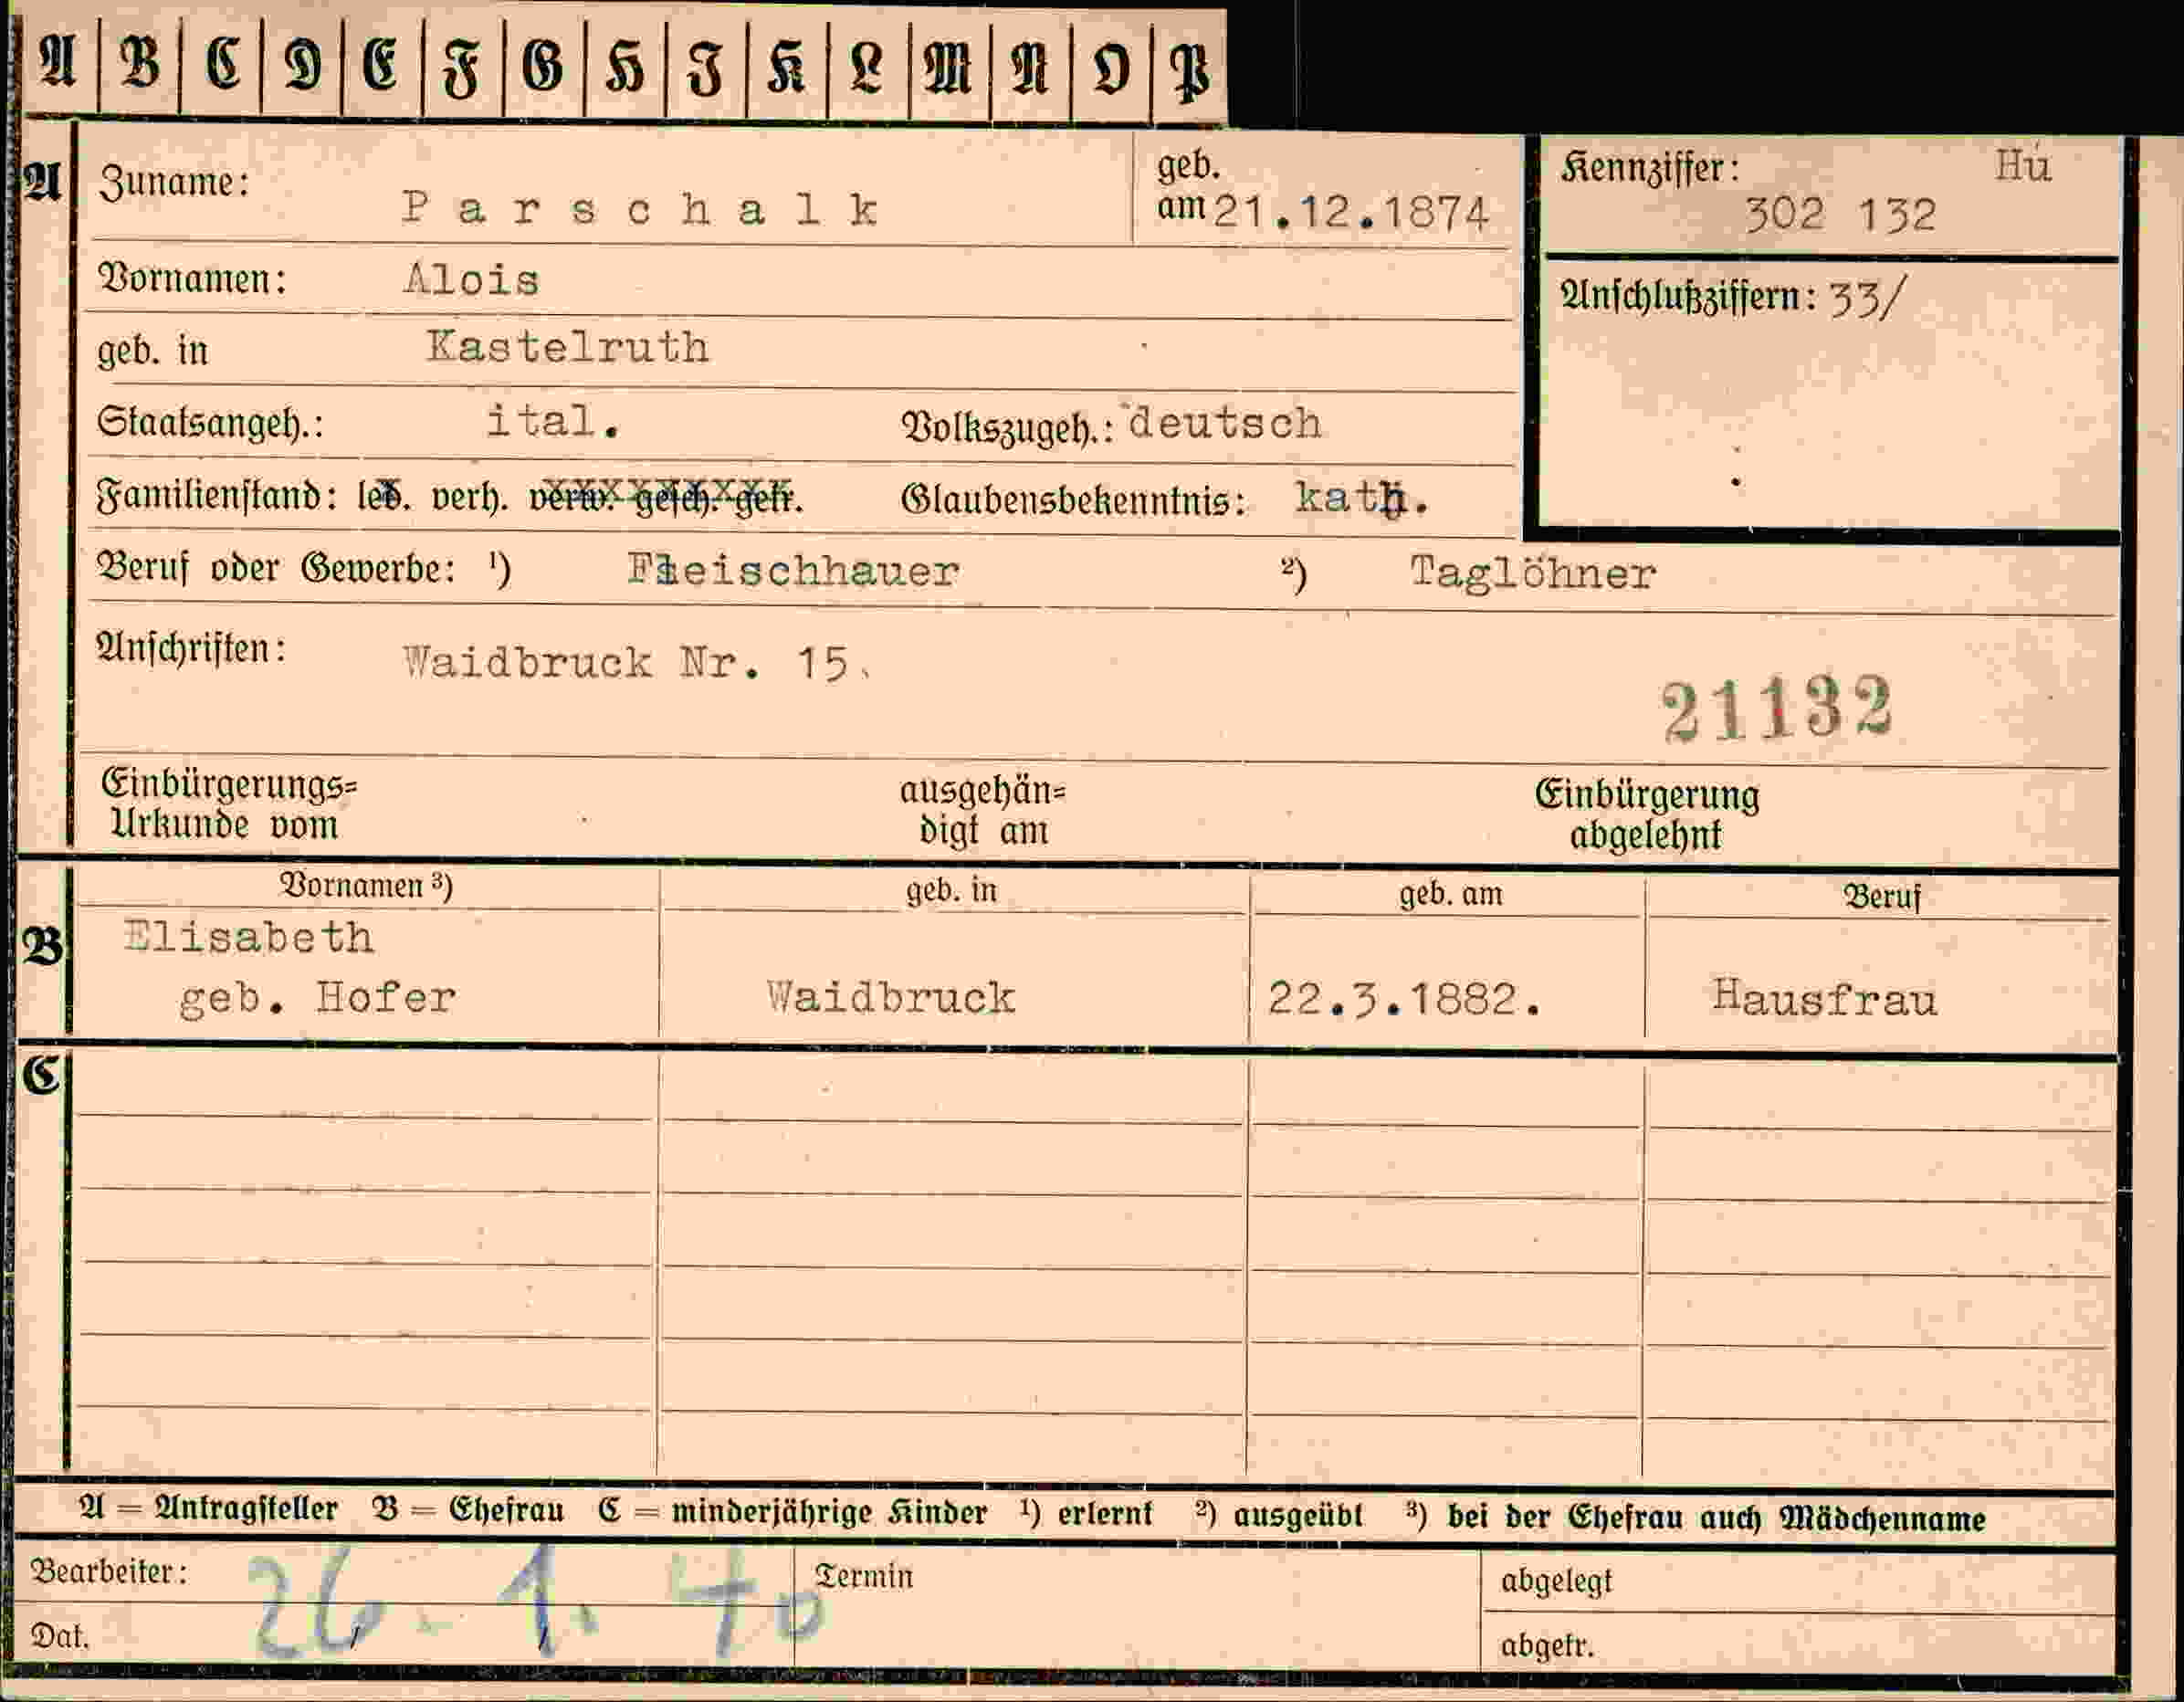 A B C D E F G H I K L M N O P
A Zuname: Parschalk geb. am 21.12.1874
Kennziffer: Hü
302 132
Vornamen: Alois
Anschlußziffern: 33/
geb. in Kastelruth
Staatsangeh.: ital. Volkszugeh.: deutsch
Familienstand: led. verh. verw. gesch. getr. Glaubensbekenntnis: kath.
Beruf oder Gewerbe: ¹) Fleischhauer ²) Taglöhner
Anschriften: Waidbruck Nr. 15.
21132
Einbürgerungs= ausgehän= Einbürgerung
Urkunde vom digt am abgelehnt
Vornamen ³) geb. in geb. am Beruf
B Elisabeth
geb. Hofer Waidbruck 22.3.1882. Hausfrau
C
A = Antragsteller B = Ehefrau C = minderjährige Kinder ¹) erlernt ²) ausgeübt ³) bei der Ehefrau auch Mädchenname
Bearbeiter: 26. 1. 40 Termin abgelegt
Dat. abgetr.